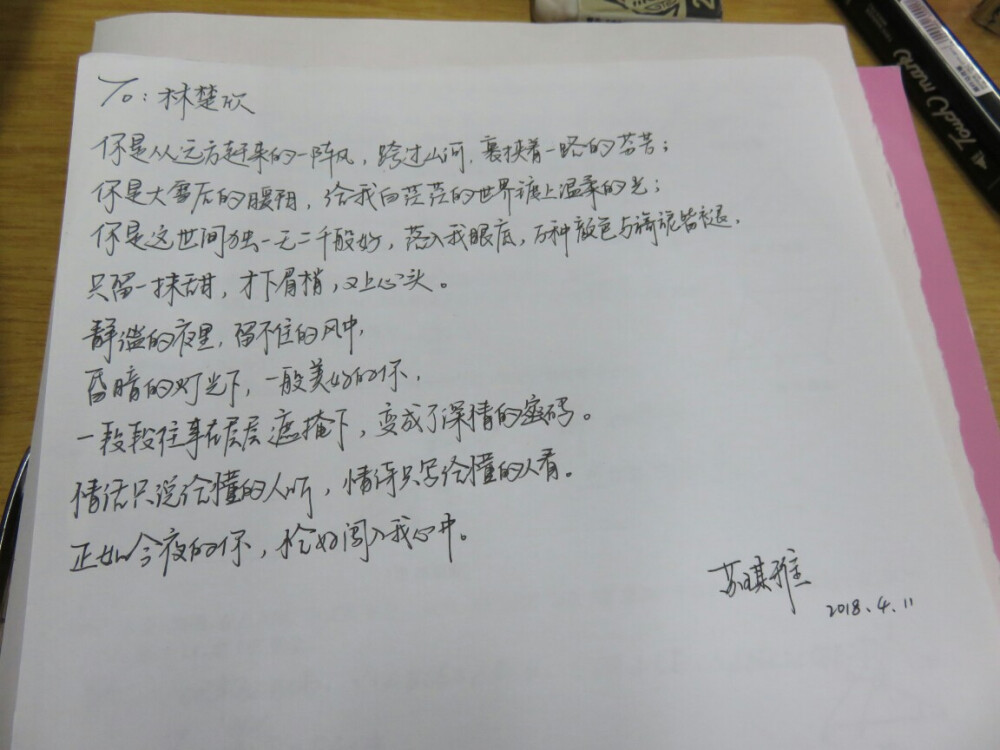 To：林楚欣
你是从远方赶来的一阵风，跨过山河，裹挟着一路的芬芳；
你是大雪后的暖阳，给我白茫茫的世界渡上温柔的光；
你是这世间独一无二千般好，落入我眼底，万种颜色与旖旎皆褪，
只留一抹甜，才下眉梢，又上心头。
静谧的夜里，留不住的风中，
昏暗的灯光下，一般美好的你，
一段段往事在层层遮掩下，变成了深情的密码。
情话只说给懂的人听，情诗只写给懂的人看。
正如今夜的你，恰好闯入我心中。
苏琪雅
2018.4.11
Touch mark